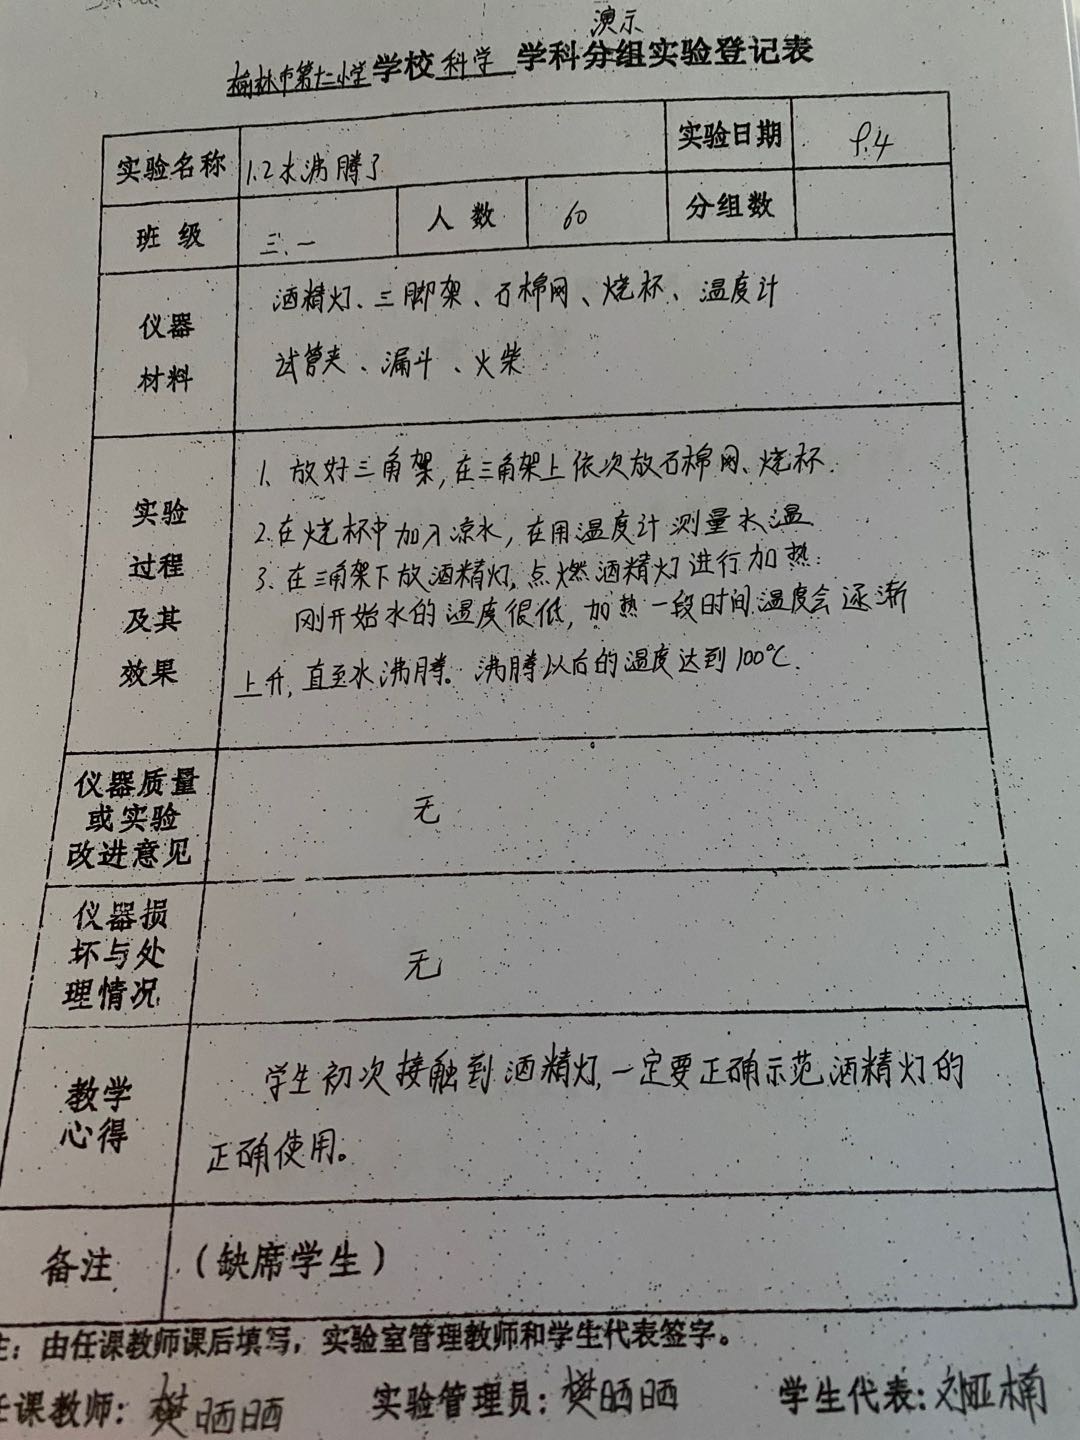 演示
榆林市第十二小学学校科学学科分组实验登记表
实验名称 1.2水沸腾了 实验日期 9.4
班级 三、一 人数 60 分组数
仪器
材料
酒精灯、三脚架、石棉网、烧杯、温度计
试管夹、漏斗、火柴
实验
过程
及其
效果
1、放好三角架,在三角架上依次放石棉网、烧杯.
2.在烧杯中加入凉水,在用温度计测量水温
3、在三角架下放酒精灯,点燃酒精灯进行加热.
刚开始水的温度很低,加热一段时间温度会逐渐
上升,直至水沸腾。沸腾以后的温度达到100℃.
仪器质量
或实验
改进意见
无
仪器损
坏与处
理情况
无
教学
心得
学生初次接触到酒精灯,一定要正确示范酒精灯的
正确使用。
备注 (缺席学生)
注:由任课教师课后填写,实验室管理教师和学生代表签字。
任课教师:樊晒晒 实验管理员:樊晒晒 学生代表:刘亚楠